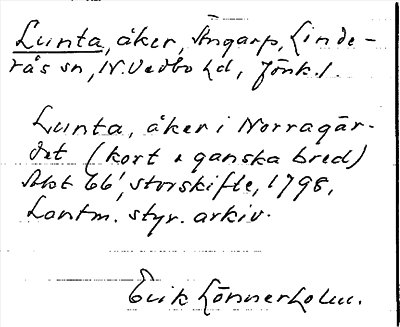 Lunta, åker, Ängarp, Linde-
rås sn, N. Vedbo hd, Jönk. l.
Lunta, åker i Norragär-
det (kort & ganska bred)
Akt 66', storskifte, 1798,
Lantm. styr. arkiv.
Erik Lönnerholm.